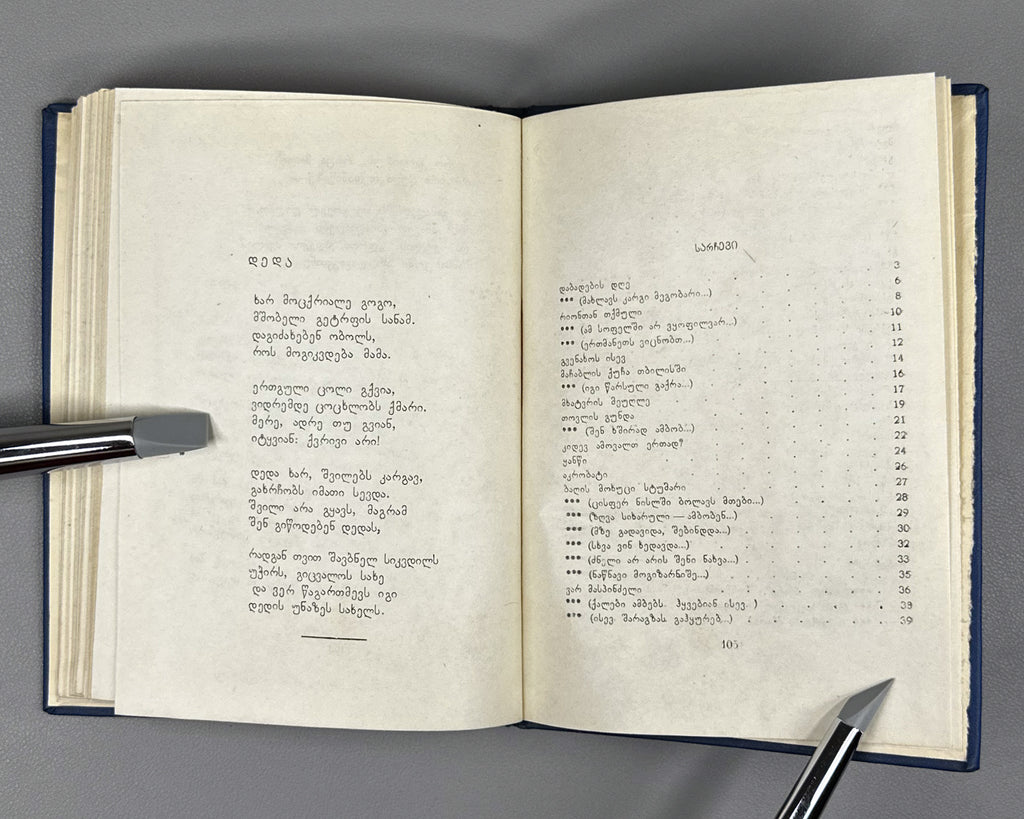 დედა
ხარ მოცქრიალე გოგო,
მშობელი გეტრფის სანამ.
დაგიძახებენ ობოლს,
როს მოგიკვდება მამა.
ერთგული ცოლი გქვია,
ვიდრემდე ცოცხლობს ქმარი.
მერე, ადრე თუ გვიან,
იტყვიან: ქვრივი არი!
დედა ხარ, შვილებს კარგავ,
გახრჩობს იმათი სევდა.
შვილი არა გყავს, მაგრამ
შენ გიწოდებენ დედას,
რადგან თვით შავბნელ სიკვდილს
უჭირს, გიცვალოს სახე
და ვერ წაგართმევს იგი
დედის უნაზეს სახელს.
სარჩევი
დაბადების დღე 3
*** (მახლავს კარგი მეგობარი...) 6
რიონთან თქმული 8
*** (ამ სოფელში არ ვყოფილვარ...) 10
*** (ერთმანეთს ვიცნობთ...) 11
გვენახოს ისევ 12
მაჩაბლის ქუჩა თბილისში 14
*** (იგი წარსული გაქრა...) 16
მხატვრის მეუღლე 17
თოვლის გუნდა 19
*** (შენ ხშირად ამბობ...) 21
კიდევ ამოვალთ ერთად? 22
ყანწი 24
აკრობატი 26
ბაღის მოხუცი სტუმარი 27
*** (ცისფერ ნისლში ბოლავს მთები...) 28
*** (ზღვა სიხარული — ამბობენ...) 29
*** (მზე გადავიდა, შებინდდა...) 30
*** (სხვა ვინ ხედავდა...) 32
*** (ძნელი არ არის შენი ნახვა...) 33
*** (ნაწნავი მოგიზარნიშე...) 35
ვარ მასპინძელი 36
*** (ქალები ამბებს ჰყვებიან ისევ ) 38
*** (ისევ შარაგზას გაჰყურებ...) 39
105